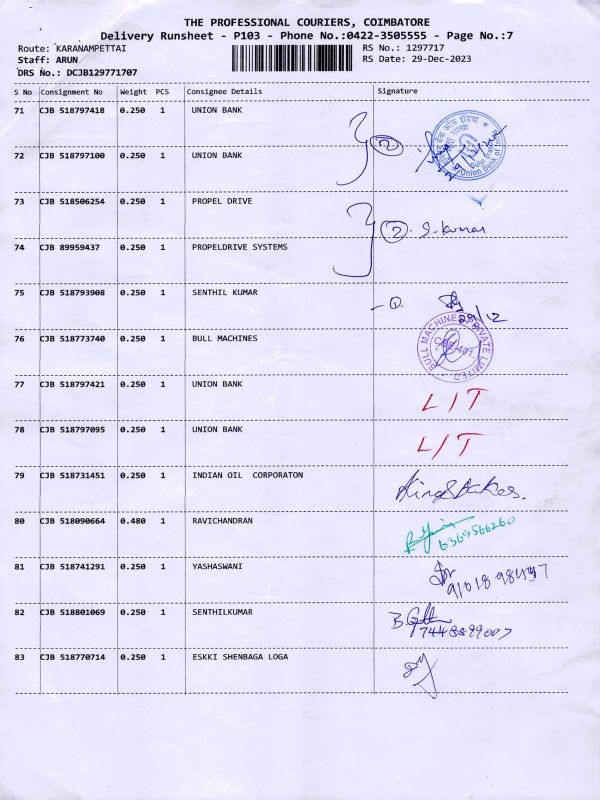 THE PROFESSIONAL COURIERS, COIMBATORE
Delivery Runsheet - P103 - Phone No.:0422-3505555 - Page No.:7
Route: KARANAMPETTAI RS No.: 1297717
Staff: ARUN RS Date: 29-Dec-2023
DRS No.: DCJB129771707
S No Consignment No Weight PCS Consignee Details Signature
71 CJB 518797418 0.250 1 UNION BANK
2
72 CJB 518797100 0.250 1 UNION BANK
Union Bank of
73 CJB 518506254 0.250 1 PROPEL DRIVE
2. S. Kumar
74 CJB 89959437 0.250 1 PROPELDRIVE SYSTEMS
75 CJB 518793908 0.250 1 SENTHIL KUMAR
29/12
76 CJB 518773740 0.250 1 BULL MACHINES
BULL MACHINES PRIVATE LIMITED
77 CJB 518797421 0.250 1 UNION BANK L/T
78 CJB 518797095 0.250 1 UNION BANK L/T
79 CJB 518731451 0.250 1 INDIAN OIL CORPORATON
80 CJB 518090664 0.480 1 RAVICHANDRAN
6369566260
81 CJB 518741291 0.250 1 YASHASWANI
82 CJB 518801069 0.250 1 SENTHILKUMAR
7448899007
83 CJB 518770714 0.250 1 ESKKI SHENBAGA LOGA